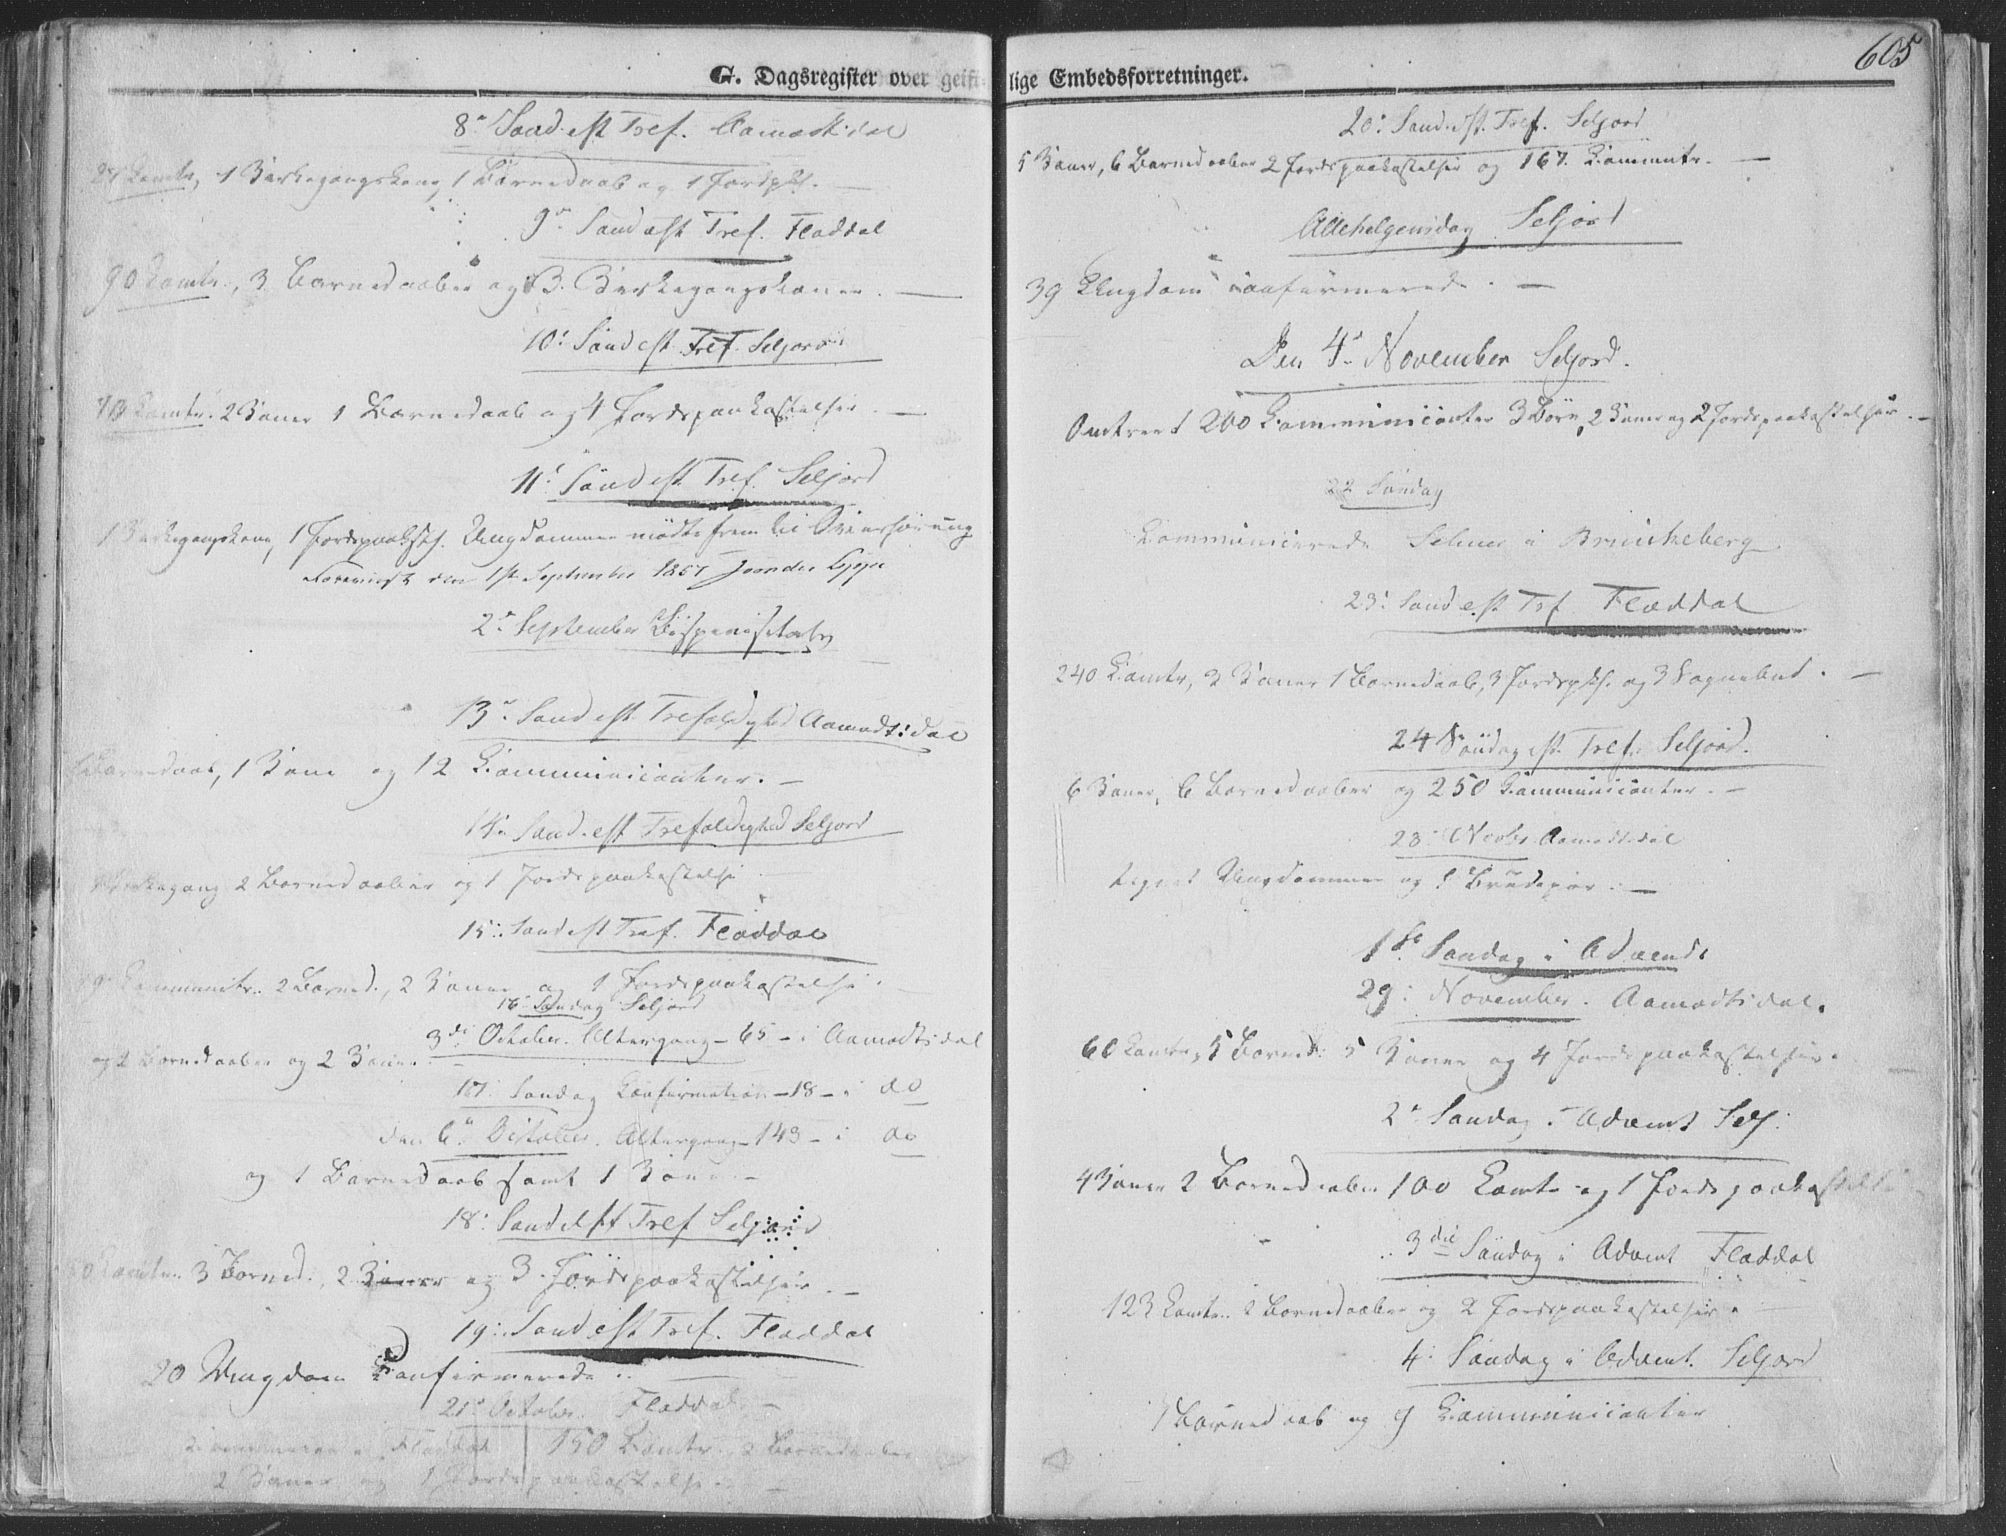 G. Dagsregister over geist-
8de Sønd. eft Tref. Aamotsdal
27 Comtr, 1 Kirkegangskone, 1 Barnedaab og 1 Jordpk.
9de Sønd eft Tref. Fladdal
90 Comtr., 3 Barnedaaber og 3 Kirkegangskoner.
10: Sønd eft Tref. Seljord
2 Koner 1 Barnedaab og 4 Jordspaakastelser.
11: Sønd eft Tref. Seljord
1 Kirkegangskone, 1 Jordspaakst. Ungdommen mødte frem til Overhøring
den 1st September 1857
2de September Bispevisitats
13de Sønd eft Trefoldighed Aamodtsdal
Barnedaab, 1 Kone og 12 Communicanter.
14de Sønd. eft Trefoldighed Seljord
Kirkegang 2 Barnedaaber og 1 Jordspaakastelse
15: Sønd eft Tref. Fladdal
Communtr. 2 Barned., 2 Koner og 1 Jordspaakastelse.
16 Søndag Seljord
3die October. Altergang – 65 – i Aamodtsdal
og 2 Barnedaaber og 2 Koner.
17: Søndag Confirmation – 18 – i do
den 6te October. Altergang – 143 – i do
og 1 Barnedaab samt 1 Kone
18: Sønd eft Tref Seljord
Comtr. 3 Barned., 2 Koner og 3 Jordspaakastelser.
19: Sønd eft Tref. Fladdal
20 Ungdom Confirmerede
21de October Fladdal
Fladdal 150 Comtr. 2 Barnedaaber
2 Koner og 1 Jordspaakastelse.
lige Embedsforretninger.
605
20: Sønd. eft. Tref. Seljord
5 Koner, 6 Barnedaaber 2 Jordspaakastelser og 167 Communtr.
Allehelgensdag Seljord
39 Ungdom confirmerede.
Den 4de November Seljord.
Omtrent 200 Communicanter 3 Børn, 2 Koner og 2 Jordspaakastelser.
22 Søndag
Communicerede i Brunkeberg
23: Sønd eft. Trf. Fladdal
240 Comtr, 3 Koner 1 Barnedaab, 3 Jordspkst. og 3 Sognebud.
24 Søndag eft. Tref. Seljord.
6 Koner, 6 Barnedaaber og 250 Communicanter.
28: Novbr. Aamodtsdal
Ungdommen og 1 Brudepar.
1ste Søndag i Advent
29: November. Aamodtsdal.
60 Comtr, 5 Barned: 5 Koner og 4 Jordspaakastelser.
2de Søndag i Advent Selj:
4 Koner 2 Barnedaaber 100 Comtr og 1 Jordspaakastelse
3die Søndag i Advent Fladdal
123 Comtr. 2 Barnedaaber og 2 Jordspaakastelser.
4: Søndag i Advent. Seljord
1 Barnedaab og 9 Communicanter